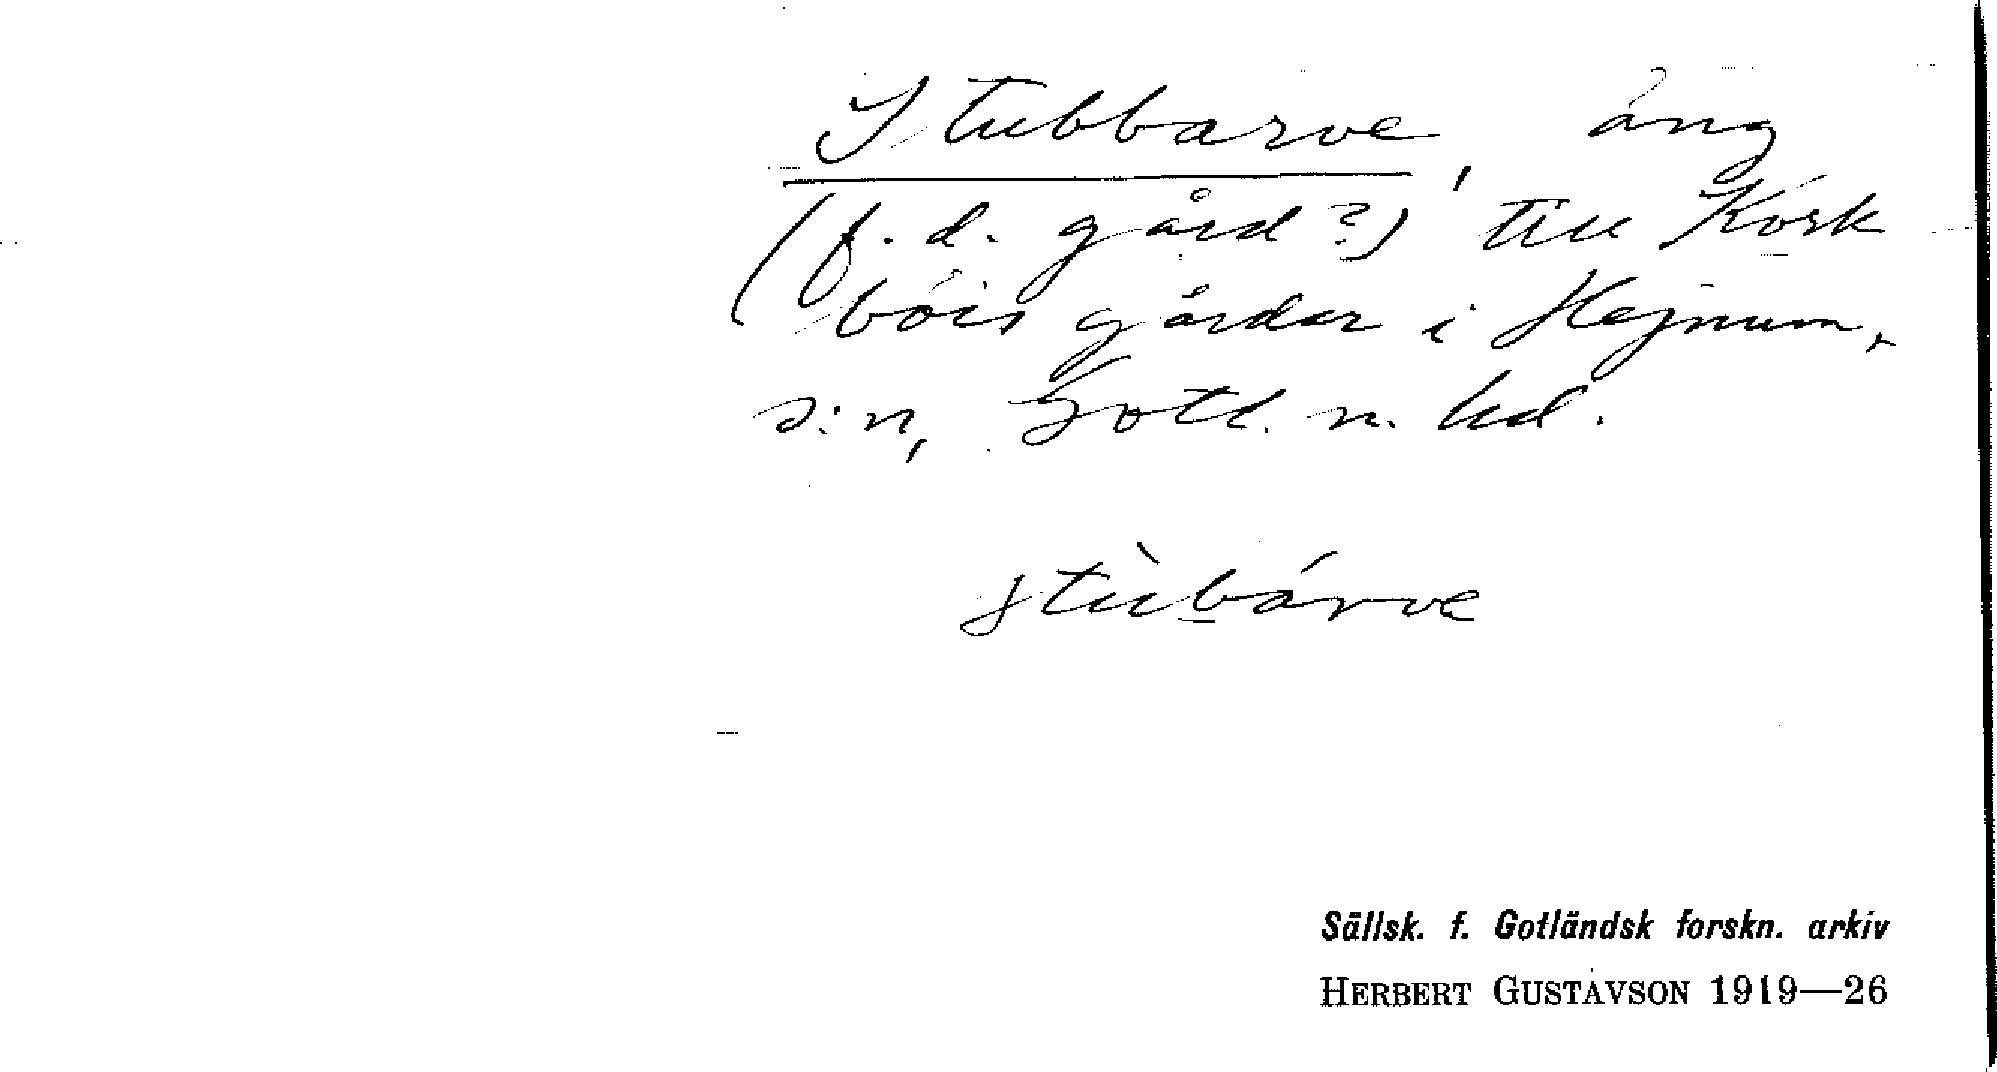 Stubbarve, äng
(f.d. gård?) till Kórk
bóis gårdar i Hejnum,
s:n, Gotl. n. hd.
stùbárve
Sällsk. f. Gotländsk forskn. arkiv
HERBERT GUSTAVSON 1919—26